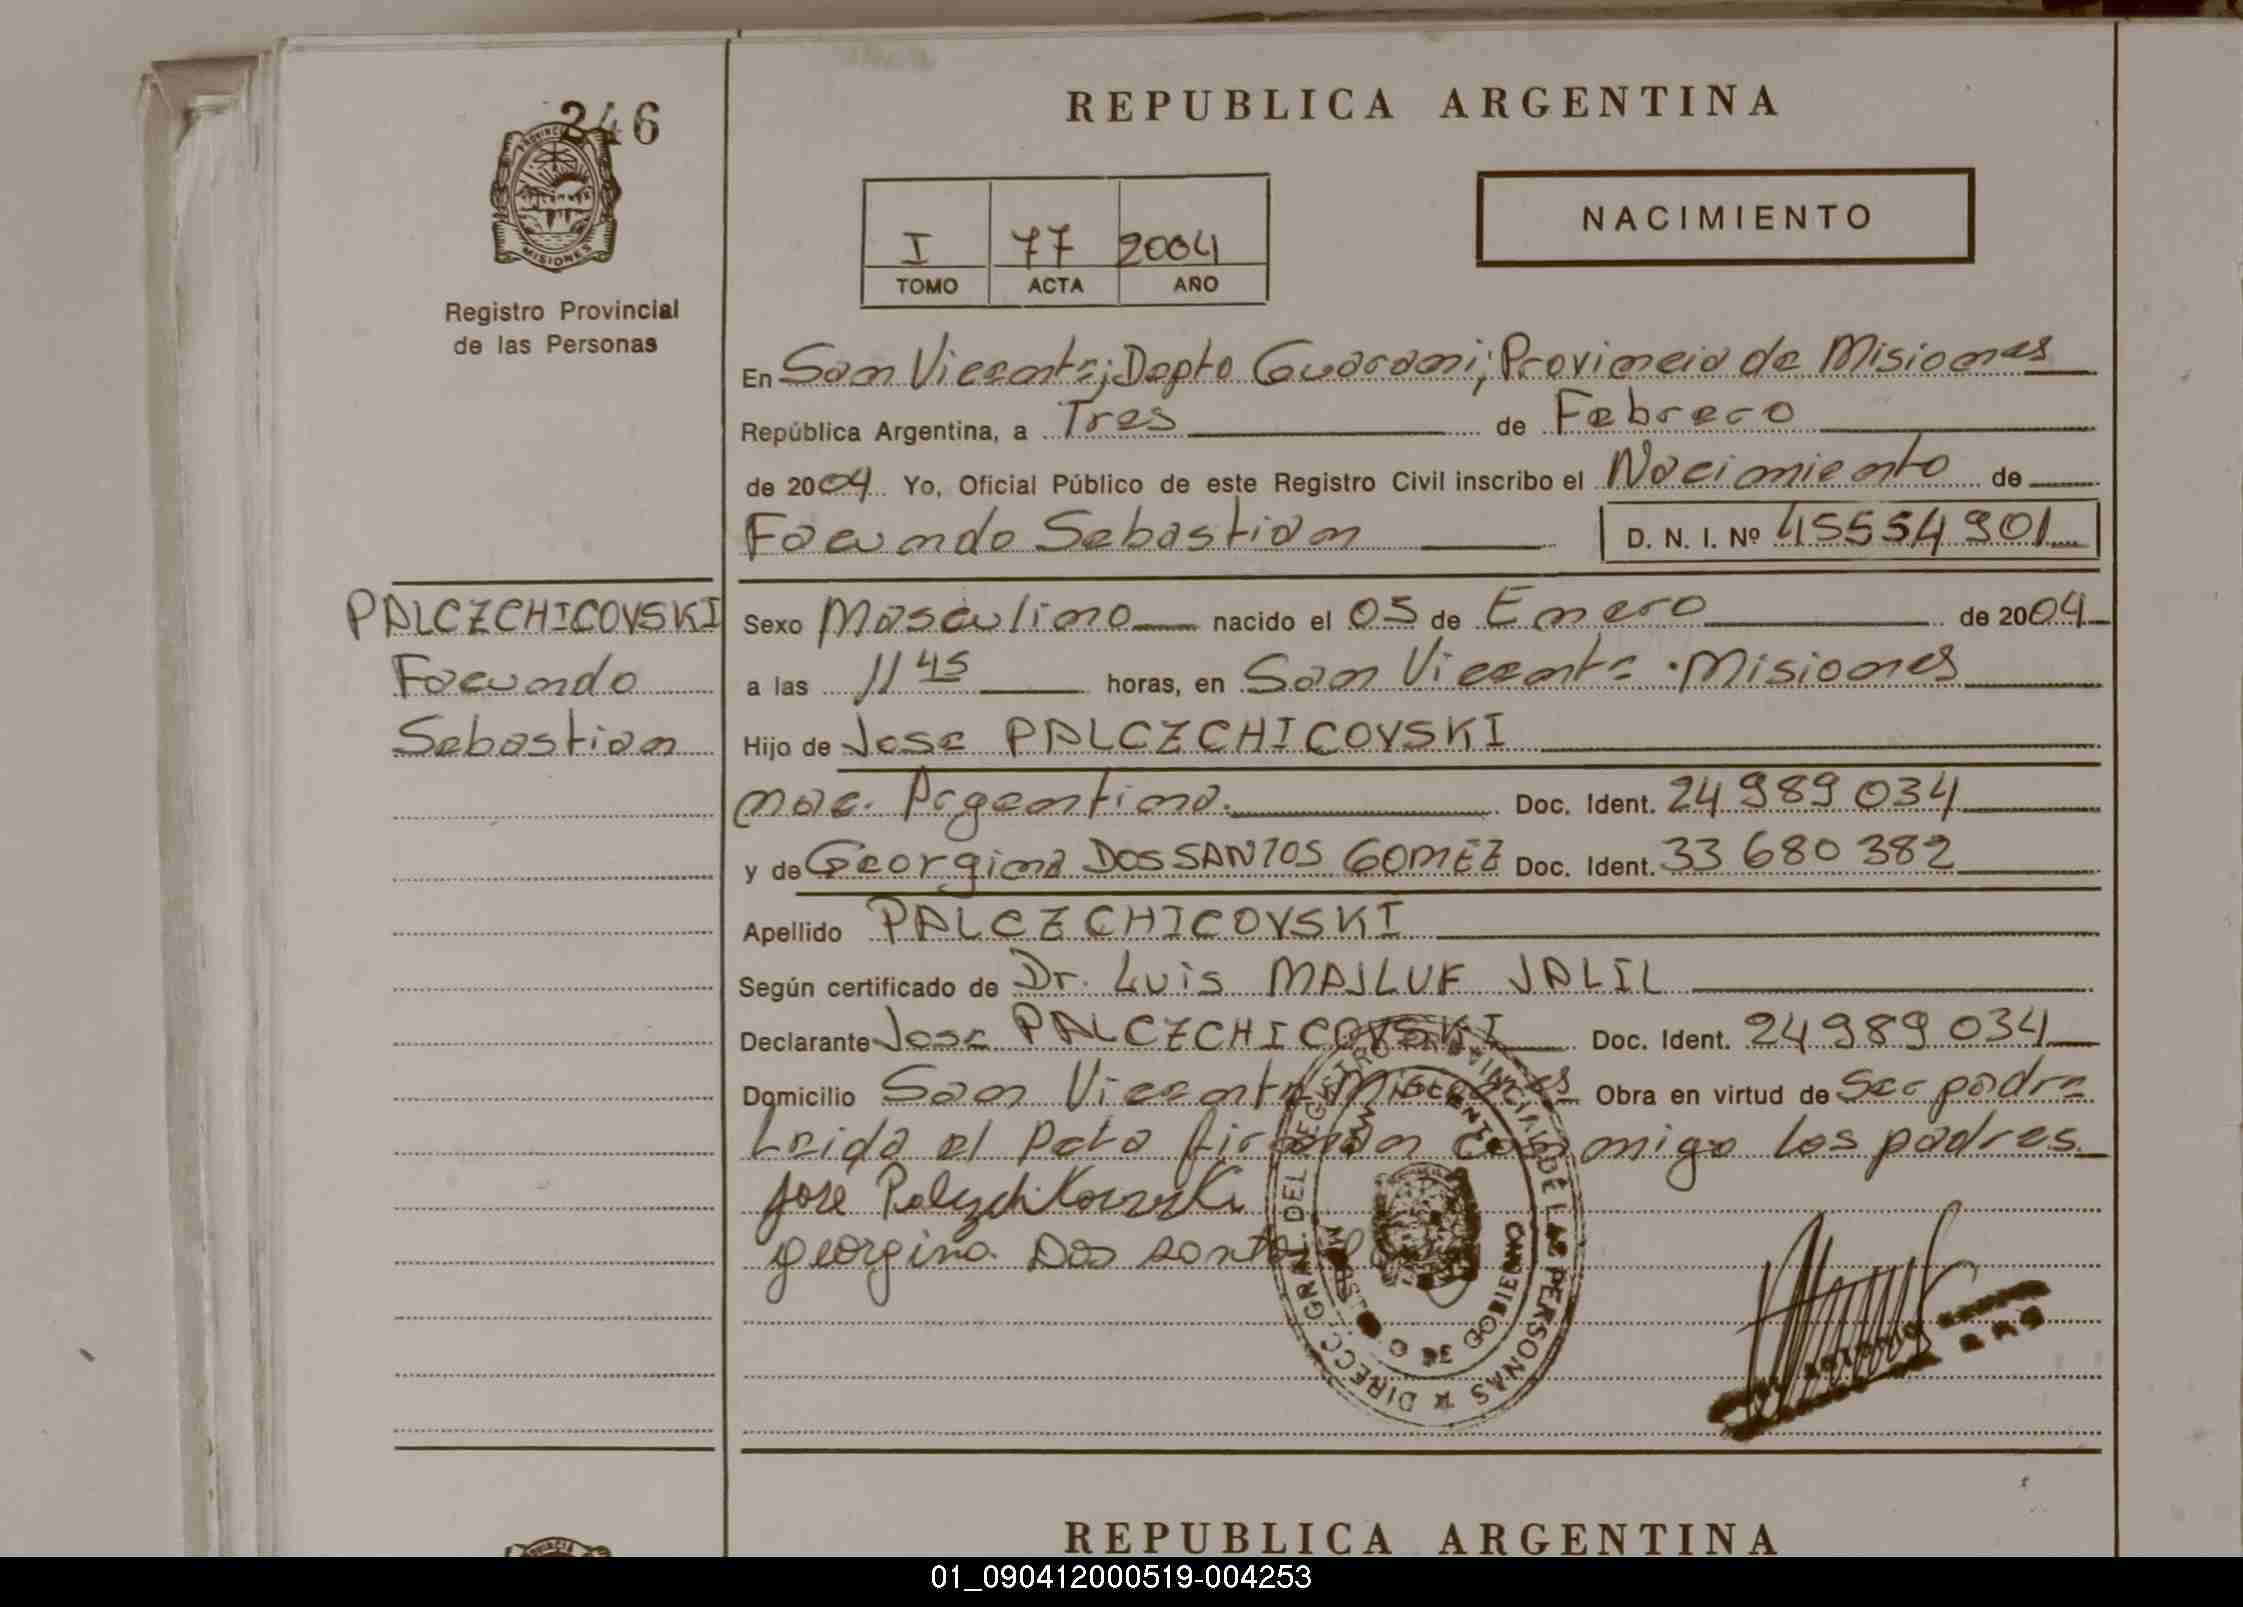 246
PROVINCIA
MISIONES
Registro Provincial
de las Personas
REPUBLICA ARGENTINA
NACIMIENTO
I 77 2004
TOMO ACTA AÑO
En San Vicente; Depto Guarani; Provincia de Misiones
República Argentina, a Tres de Febrero
de 2004 Yo, Oficial Público de este Registro Civil inscribo el Nacimiento de
Facundo Sebastian D. N. I. Nº 45554901
PALCZCHICOVSKI
Facundo
Sebastian
Sexo Masculino nacido el 05 de Enero de 2004
a las 11 45 horas, en San Vicente - Misiones
Hijo de Jose PALCZCHICOVSKI
nac. Argentina. Doc. Ident. 24 989 034
y de Georgina DOS SANTOS GOMEZ Doc. Ident. 33 680 382
Apellido PALCZCHICOVSKI
Según certificado de Dr. Luis MAJLUF JALIL
Declarante Jose PALCZCHICOVSKI Doc. Ident. 24 989 034
Domicilio San Vicente Misiones Obra en virtud de Ser padre
Leida el Acta firman conmigo los padres.
José Palczchikovski
georgina Dos santos
DIRECC. GRAL. DEL REGISTRO PROVINCIAL DE LAS PERSONAS
GOBIERNO
REPUBLICA ARGENTINA
01_090412000519-004253